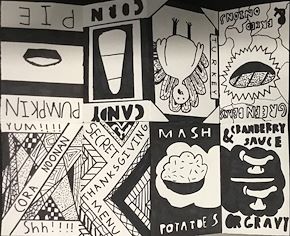 PUMPKIN
PIE
CANDY
CORN
TURKEY
GREEN BEANS
& FRIED ONIONS
YUM!!!!
CORA NOONAN
Shh!!!!
SECRET
THANKSGIVING
MENU
MASH
POTATOES
CRANBERRY
& SAUCE
OR GRAVY